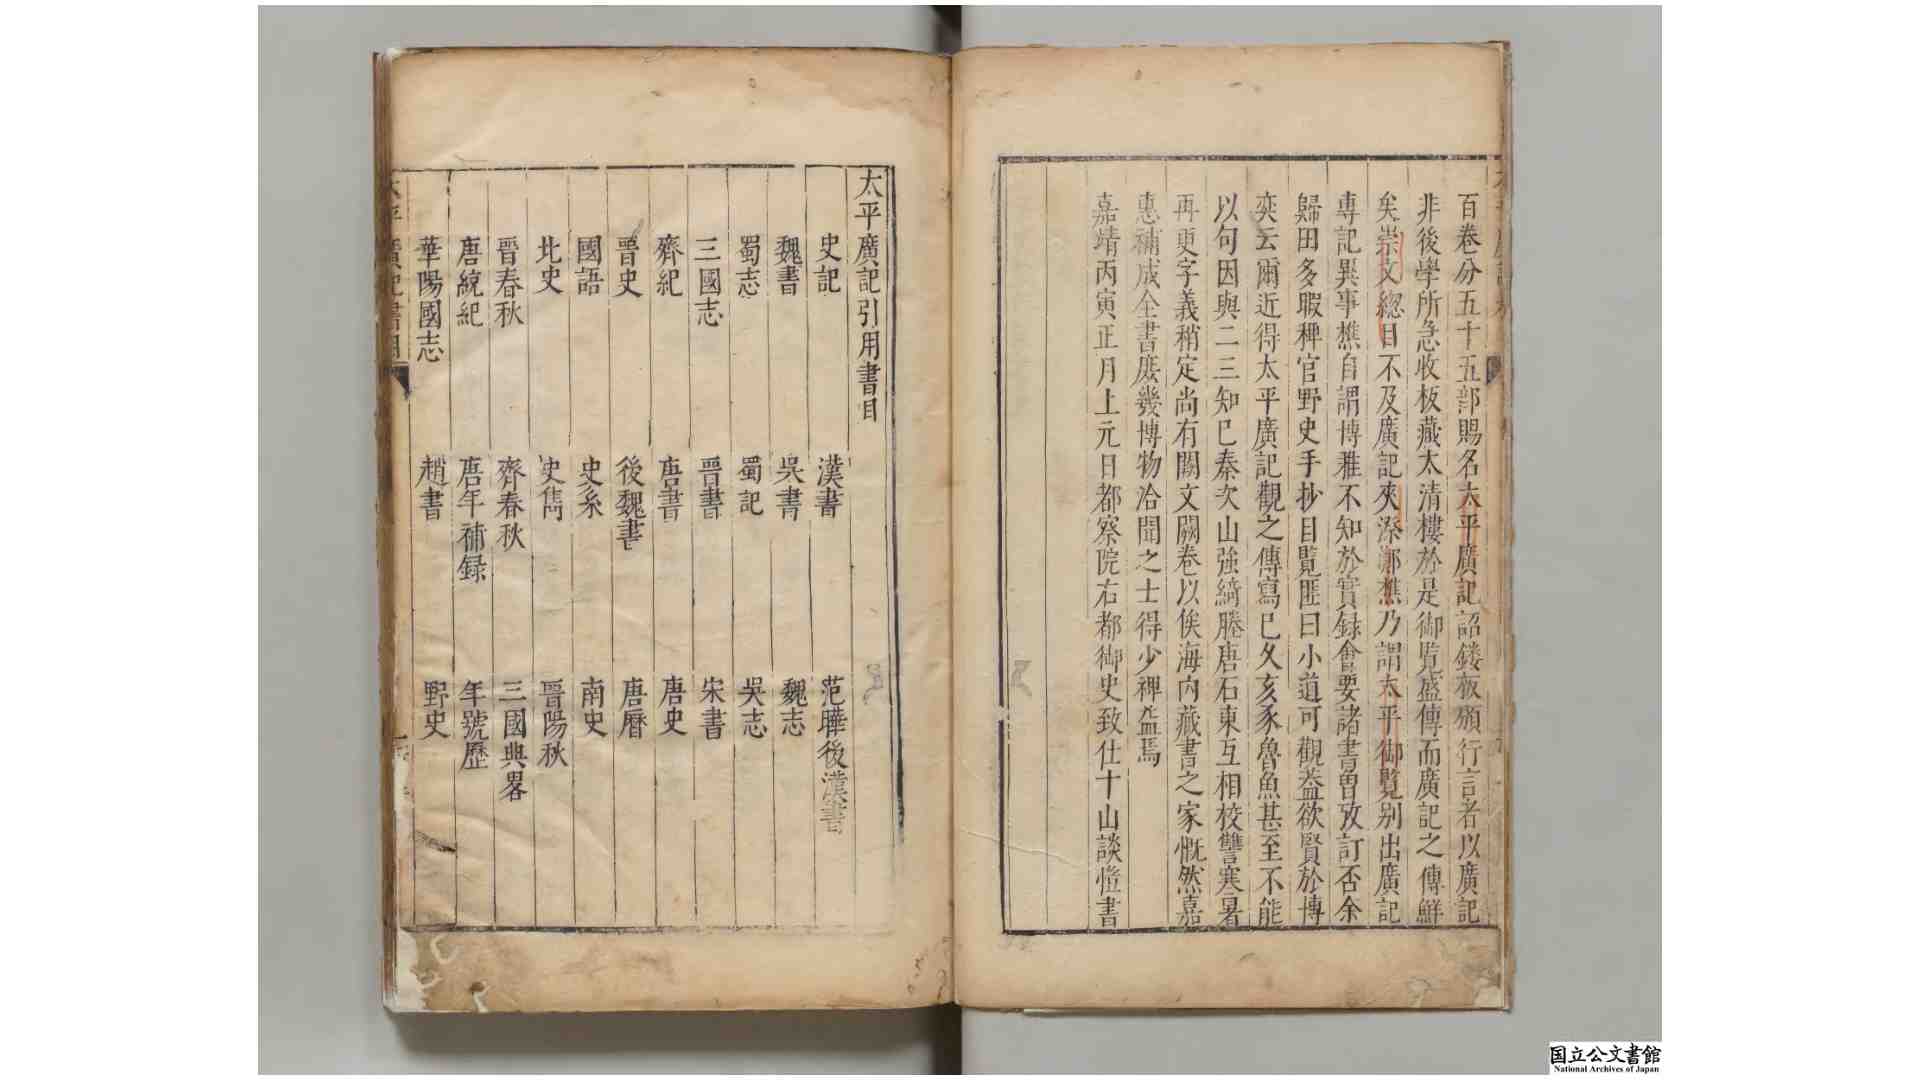 百卷分五十五部賜名太平廣記詔鏤板頒行言者以廣記
非後學所急收板藏太清樓於是御覧盛傳而廣記之傳鮮
矣崇文總目不及廣記夾漈鄭樵乃謂太平御覧別出廣記
專記異事樵自謂博雅不知於實録會要諸書曽攷訂否余
歸田多暇稗官野史手抄目覧匪曰小道可觀葢欲賢於博
奕云爾近得太平廣記觀之傳寫已久亥豕魯魚甚至不能
以句因與二三知已秦次山強綺塍唐石東互相校讐寒暑
再更字義稍定尚有闕文闕卷以俟海内藏書之家慨然嘉
惠補成全書庶幾博物洽聞之士得少裨益焉
嘉靖丙寅正月上元日都察院右都御史致仕十山談愷書
太平廣記引用書目
史記 漢書 范曄後漢書
魏書 吳書 魏志
蜀志 蜀記 吳志
三國志 晉書 宋書
齊紀 唐書 唐史
晉史 後魏書 唐曆
國語 史系 南史
北史 史雋 晉陽秋
晉春秋 齊春秋 三國典畧
唐統紀 唐年補録 年號歷
華陽國志 趙書 野史